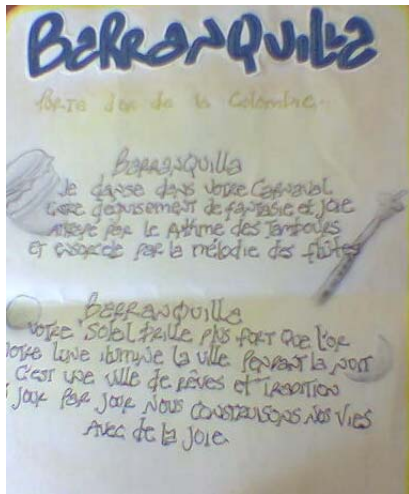 Barranquilla
Porte d'or de la Colombie..
Barranquilla
Je danse dans votre Carnaval
deguisement de fantasie et joie
par le Rithme des Tambours
et ensorcelé par la mélodie des flûtes
Barranquilla
votre soleil brille plus fort que l'or
votre lune ilumine la ville pendant la nuit
c'est une ville de rêves et tradition
jour par jour nous construisons nos vies
avec de la joie.